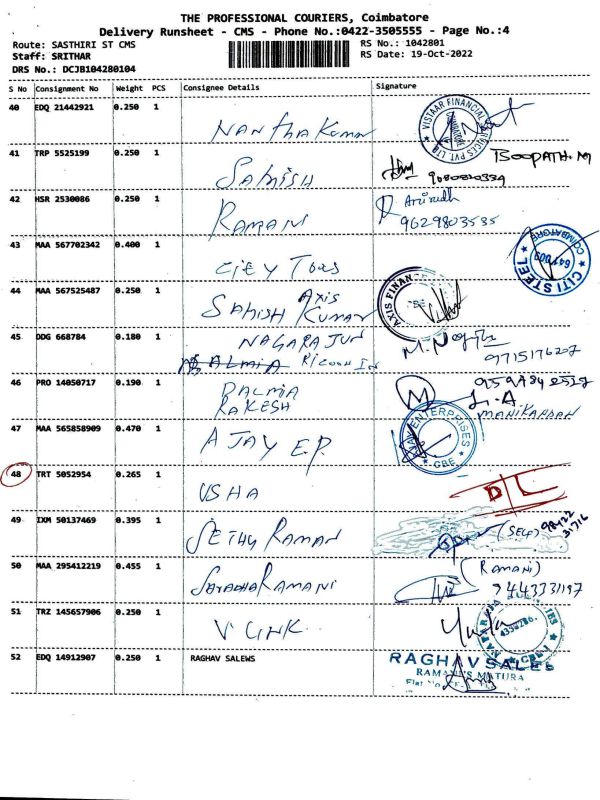 THE PROFESSIONAL COURIERS, Coimbatore
Delivery Runsheet - CMS - Phone No.:0422-3505555 - Page No.:4
Route: SASTHIRI ST CMS
RS No.: 1042801
Staff: SRITHAR
RS Date: 19-Oct-2022
DRS No.: DCJB104280104
S No Consignment No Weight PCS Consignee Details Signature
40 EDQ 21442921 0.250 1 Nantha Kumar
VISTAAR FINANCIAL SERVICES PVT. LTD. COIMBATORE
41 TRP 5525199 0.250 1 Sathish
BOOPATHI. M
42 HSR 2530086 0.250 1 RAMANI
Anirudh
9629803535
43 MAA 567702342 0.400 1 City Tools
CITI STEEL COIMBATORE
44 MAA 567525487 0.250 1 Axis
Sathish Kumar
AXIS FINAN
45 DDG 668784 0.180 1 NAGARAJUN
9715176207
46 PRO 14050717 0.190 1 DALMIA
RAKESH
MANIKANDAN
47 MAA 565858909 0.470 1 AJAY E.P.
ENTERPRISES CBE
48 TRT 5052954 0.265 1 USHA
DL
49 IXM 50137469 0.395 1 SETHU RAMAN
(SELF)
50 MAA 295412219 0.455 1 Saradha Ramani
(Ramani)
9443331197
51 TRZ 145657906 0.250 1 V LINK
52 EDQ 14912907 0.250 1 RAGHAV SALEWS
RAGHAV SALES
RAMANI'S MATURA